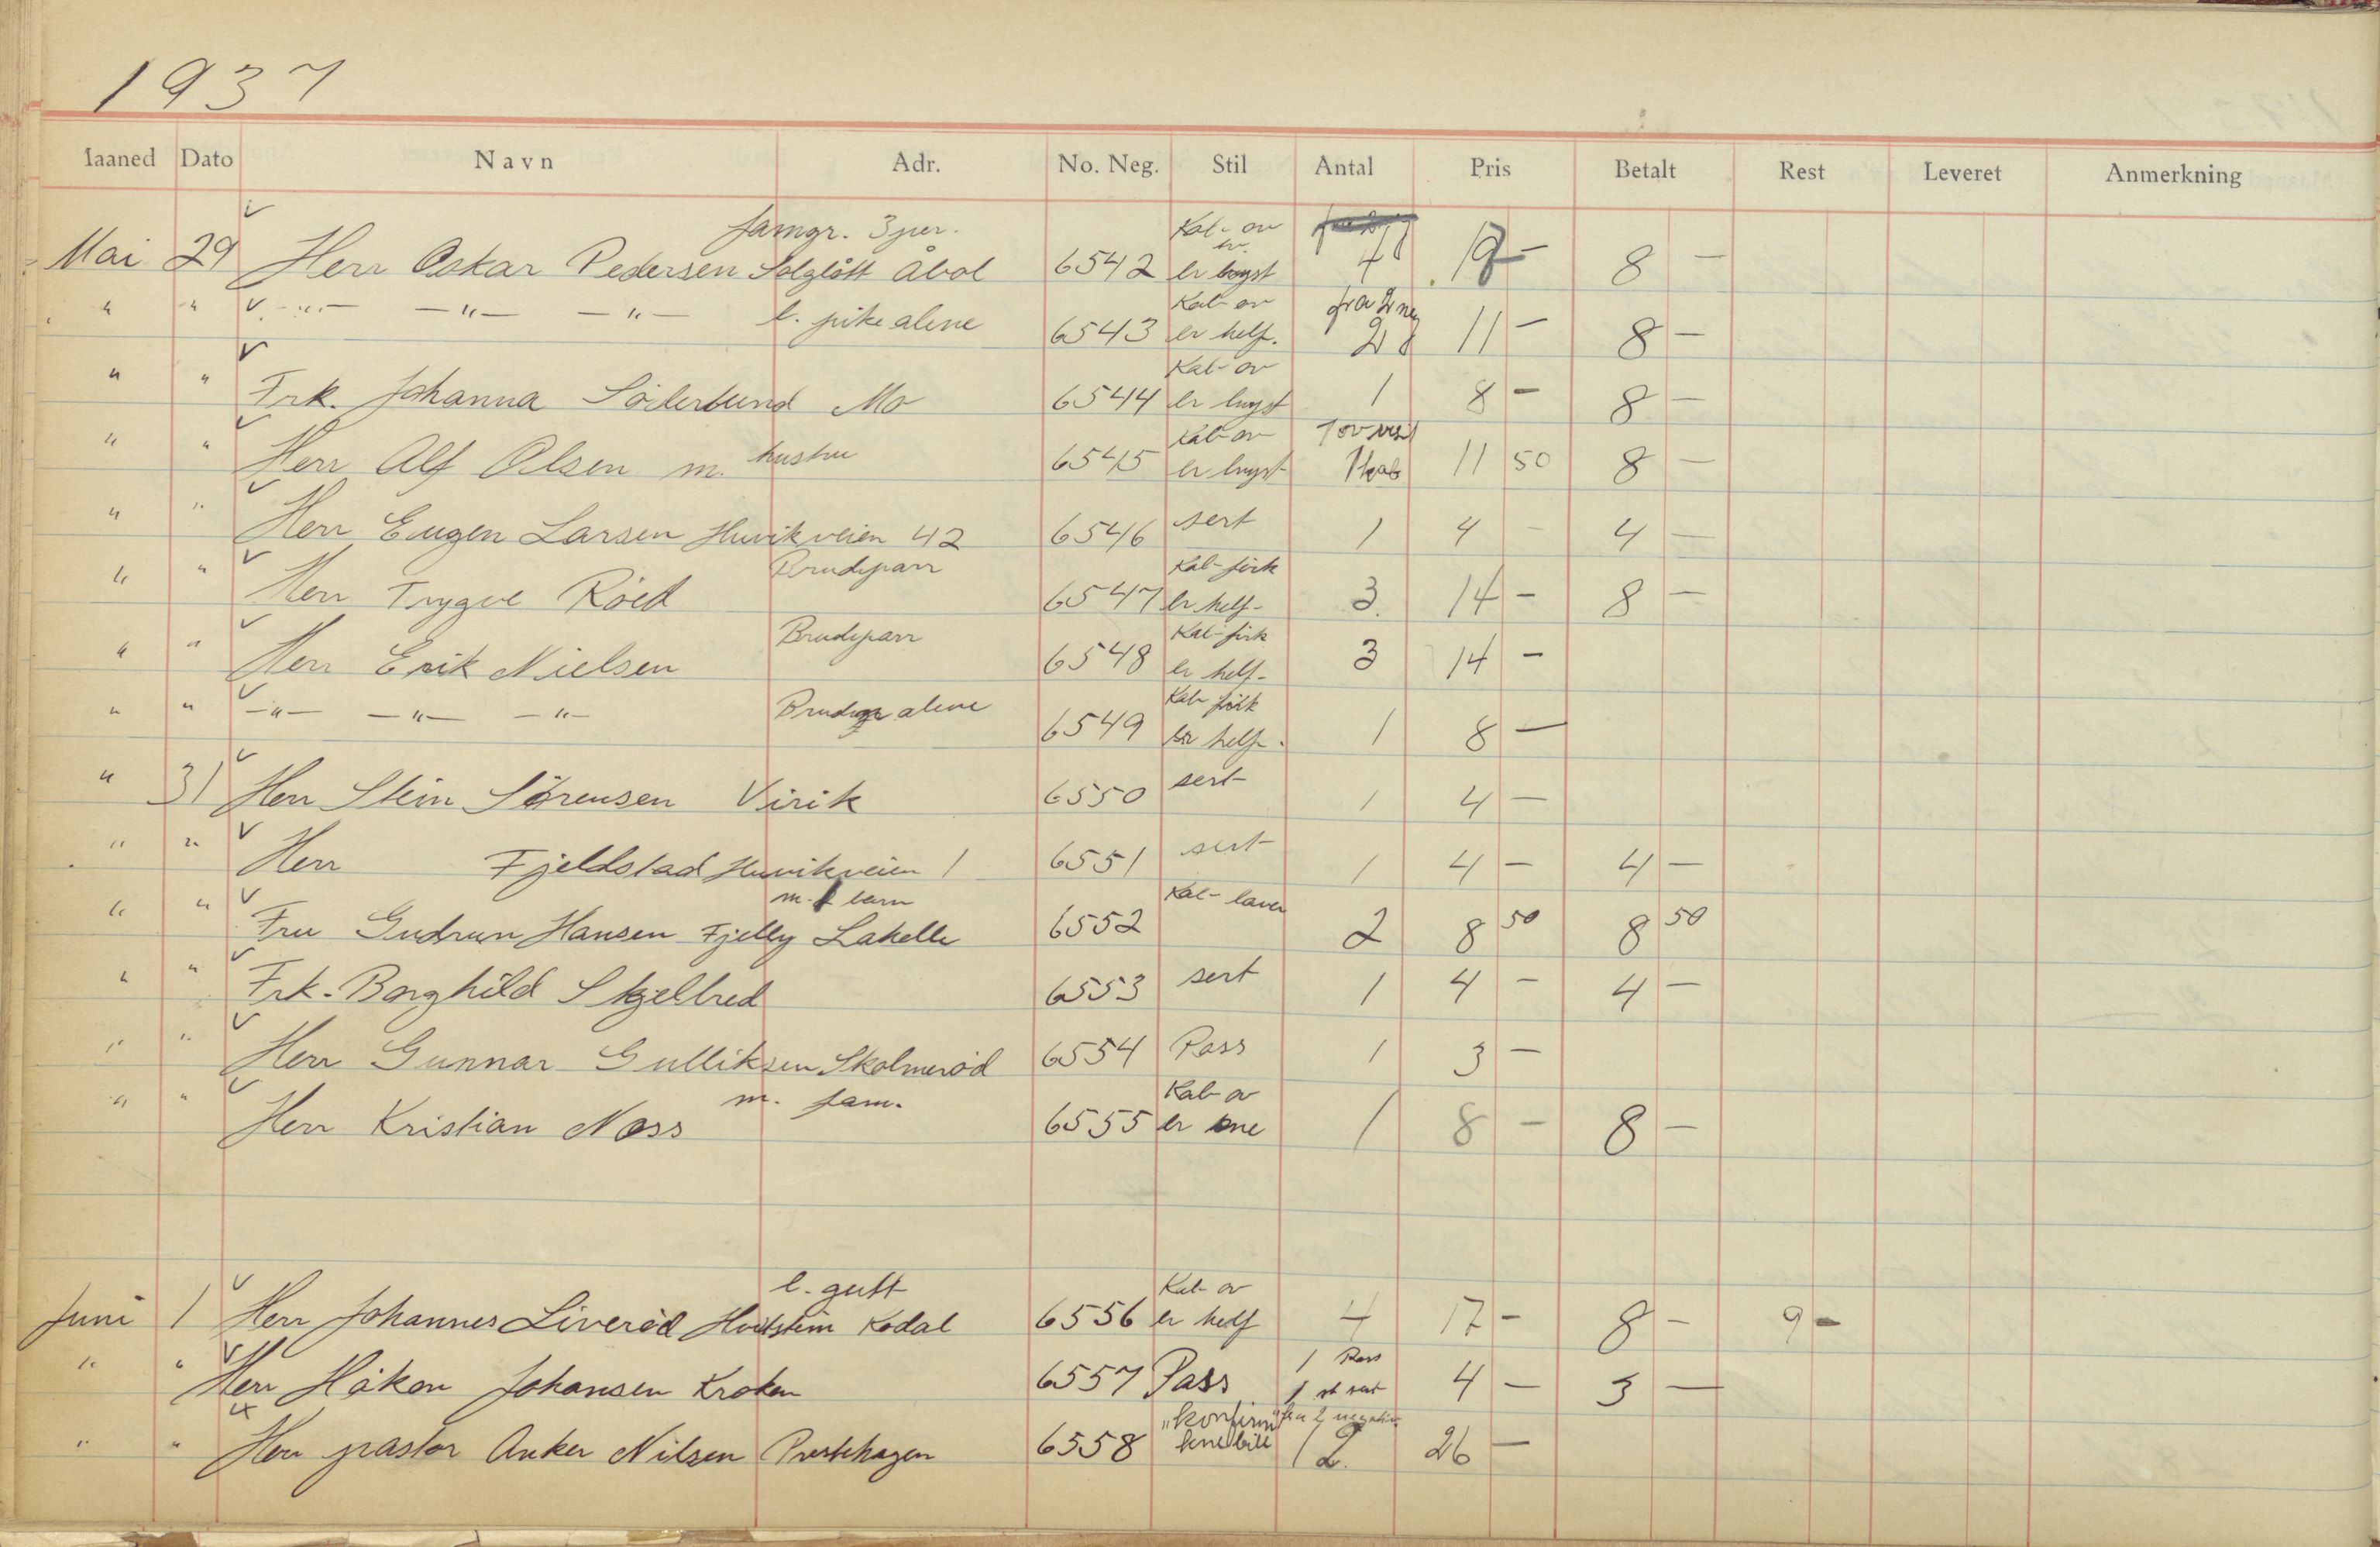 1937
Maaned Dato Navn Adr. No. Neg. Stil Antal Pris Betalt Rest Leveret Anmerkning
famgr. 3 per. Kab- ov
Mai 29 Herr Oskar Pedersen Solgløtt Åbol 6542 er bryst 4 8 -
Kab- ov fra 2 neg
" " -"- -"- -"- l. pike alene 6543 er helf. 2 11 - 8 -
Kab- ov
" " Frk. Johanna Söderlund Mo 6544 er bryst 1 8 - 8 -
Kab- ov 1 ov visit
" " Herr Alf Olsen m. hustru 6545 er bryst 1 kab 11 50 8 -
" " Herr Eugen Larsen Huvikveien 42 6546 sert 1 4 - 4 -
Brudeparr Kab- firk
" " Herr Trygve Röed 6547 er helf- 3 14 - 8 -
Brudeparr Kab- firk
" " Herr Erik Nielsen 6548 er helf- 3 14 -
Kab- firk
" " -"- -"- -"- alene 6549 er helf- 1 8 -
" 31 Herr Stein Sörensen Virik 6550 sert 1 4 -
" " Herr Fjeldstad Huvikveien 1 6551 sert 1 4 - 4 -
m. barn Kab- laver
" " Fru Gudrun Hansen Fjelly Lakelle 6552 2 8 50 8 50
" " Frk. Borghild Skjelbred 6553 sert 1 4 - 4 -
" " Herr Gunnar Gulliksen Skolmeröd 6554 Pass 1 3 -
m. fam. Kab- ov
" " Herr Kristian Næss 6555 er kne 1 8 - 8 -
l. gutt Kab- ov
Juni 1 Herr Johannes Liveröd Kodal 6556 er helf 4 17 - 8 - 9 -
1 Pass
" " Herr Håkon Johansen Kroken 6557 Pass 1 st sert 4 - 3 -
"konfirm" fra 2 negativ
" " Herr pastor Anker Nilsen Prestehagen 6558 knebill 12 26 -